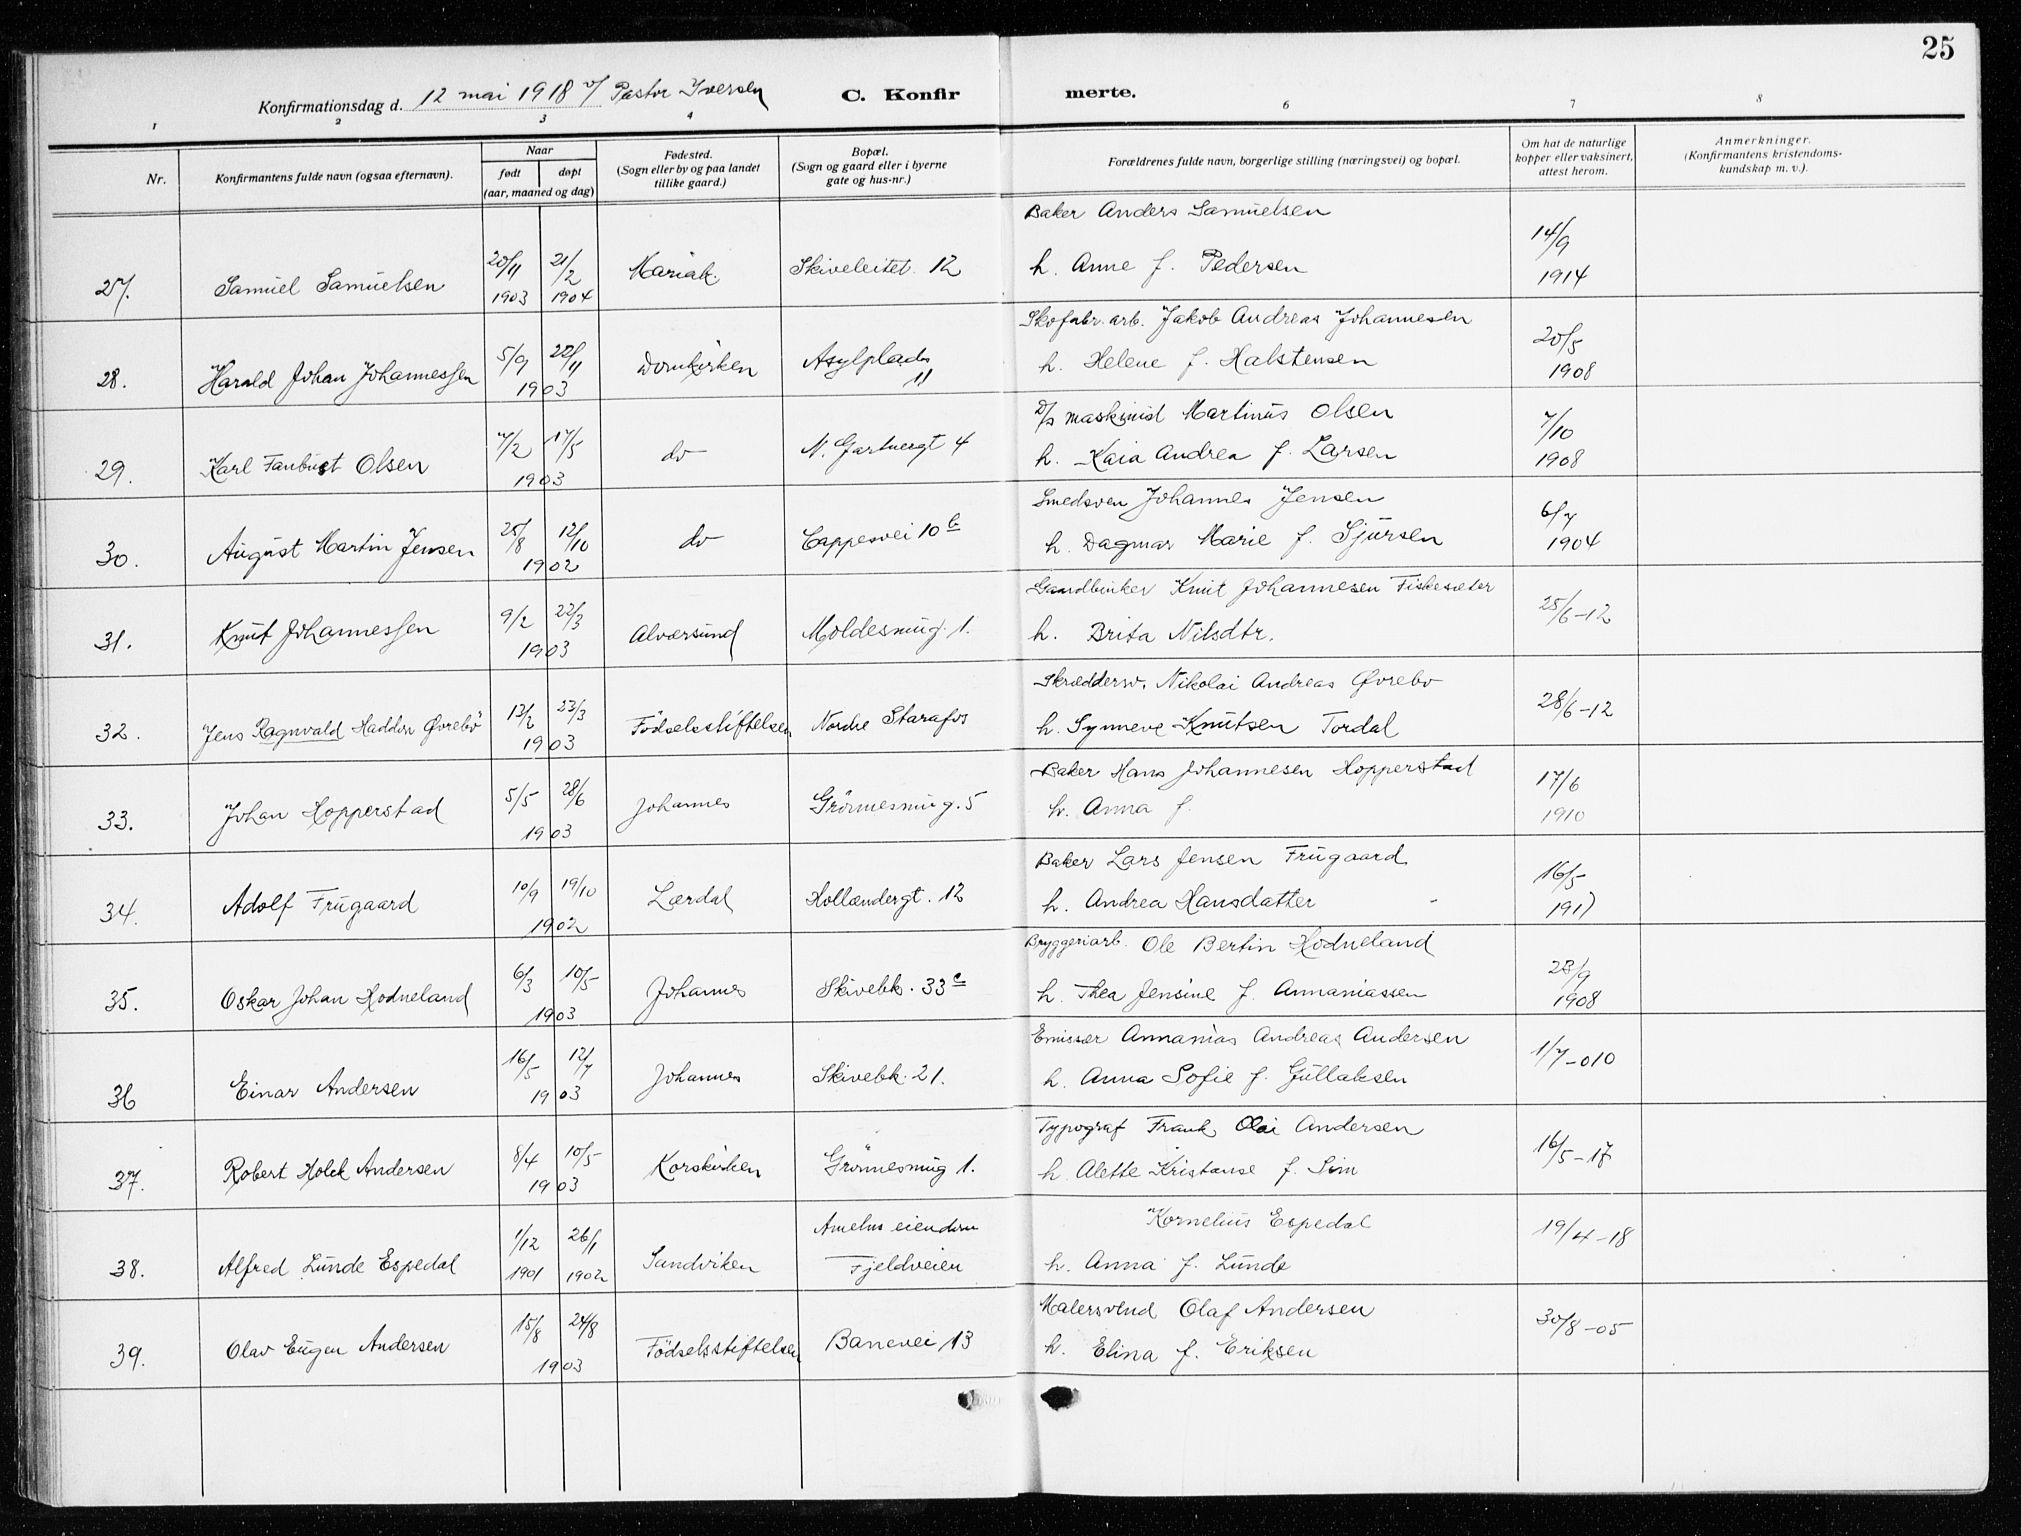 25
Konfirmationsdag d. 12 mai 1918 v/ Pastor Iversen
C. Konfirmerte.
1 2 3 4 6 7 8
Nr.
Konfirmantens fulde navn (ogsaa efternavn).
Naar
født døpt
(aar, maaned og dag)
Fødested.
(Sogn eller by og paa landet
tillike gaard.)
Bopæl.
(Sogn og gaard eller i byerne
gate og hus-nr.)
Forældrenes fulde navn, borgerlige stilling (næringsvei) og bopæl.
Om hat de naturlige
kopper eller vaksinert,
attest herom.
Anmerkninger.
(Konfirmantens kristendoms-
kundskap m. v.).
Baker Anders Samuelsen
27. Samuel Samuelsen 20/11 1903 21/2 1904 Mariak. Skiveleitet 12 h. Anne f. Pedersen 14/9 1914
Skofabr. arb. Jakob Andreas Johannesen
28. Harald Johan Johannessen 5/9 22/11 1903 Domkirken Asylplads 11 h. Helene f. Halstensen 20/5 1908
D/s maskinist Martinus Olsen
29. Karl Fanbust Olsen 7/2 17/5 1903 do N. Gartnergt 4 h. Kaia Andrea f. Larsen 7/10 1908
Smedsven Johannes Jensen
30. August Martin Jensen 25/8 12/10 1902 do Cappesvei 10 b h. Dagmar Marie f. Sjursen 6/7 1904
Knut Johannesen Fiskesæter
31. Knut Johannessen 9/2 22/3 1903 Alværsund Moldesmug 1. h. Brita Nilsdtr. 25/6-12
Skræddersv. Nikolai Andreas Øvrebø
32. Jens Ragnvald Haddon Øvrebö 12/2 23/3 1903 Födselsstiftelsen Nordre Starafos h. Synneve Knutsen Tordal 28/6-12
Baker Hans Johannesen Hopperstad
33. Johan Hopperstad 5/5 28/6 1903 Johannes Grönnesmug. 5 h. Anna f. 17/6 1910
Baker Lars Jensen Frugaard
34. Adolf Frugaard 10/9 19/10 1902 Lærdal Hollændergt. 12 h. Andrea Hansdatter 16/5 1917
Bryggeriarb. Ole Bertin Hodneland
35. Oskar Johan Hodneland 6/3 10/5 1903 Johannes Skivebk. 33 c h. Thea Jensine f. Annaniassen 23/9 1908
Emissær Annanias Andreas Andersen
36 Einar Andersen 16/5 12/7 1903 Johannes Skivebk. 21. h. Anna Sofie f. Gullaksen 1/7-010
Typograf Frank Olai Andersen
37. Robert Holck Andersen 8/4 10/5 1903 Korskirken Grönnesmug 1. h. Alette Kristanse f. Sim 16/5-17
Kornelius Espedal
38. Alfred Lunde Espedal 1/12 1901 26/1 1902 Sandviken Amelns eiendom Fjeldveien h. Anna f. Lunde 19/4-18
Malersvend Olaf Andersen
39. Olav Eugen Andersen 15/8 24/8 1903 Födselsstiftelsen Banevei 13 h. Elina f. Eriksen 30/8-05